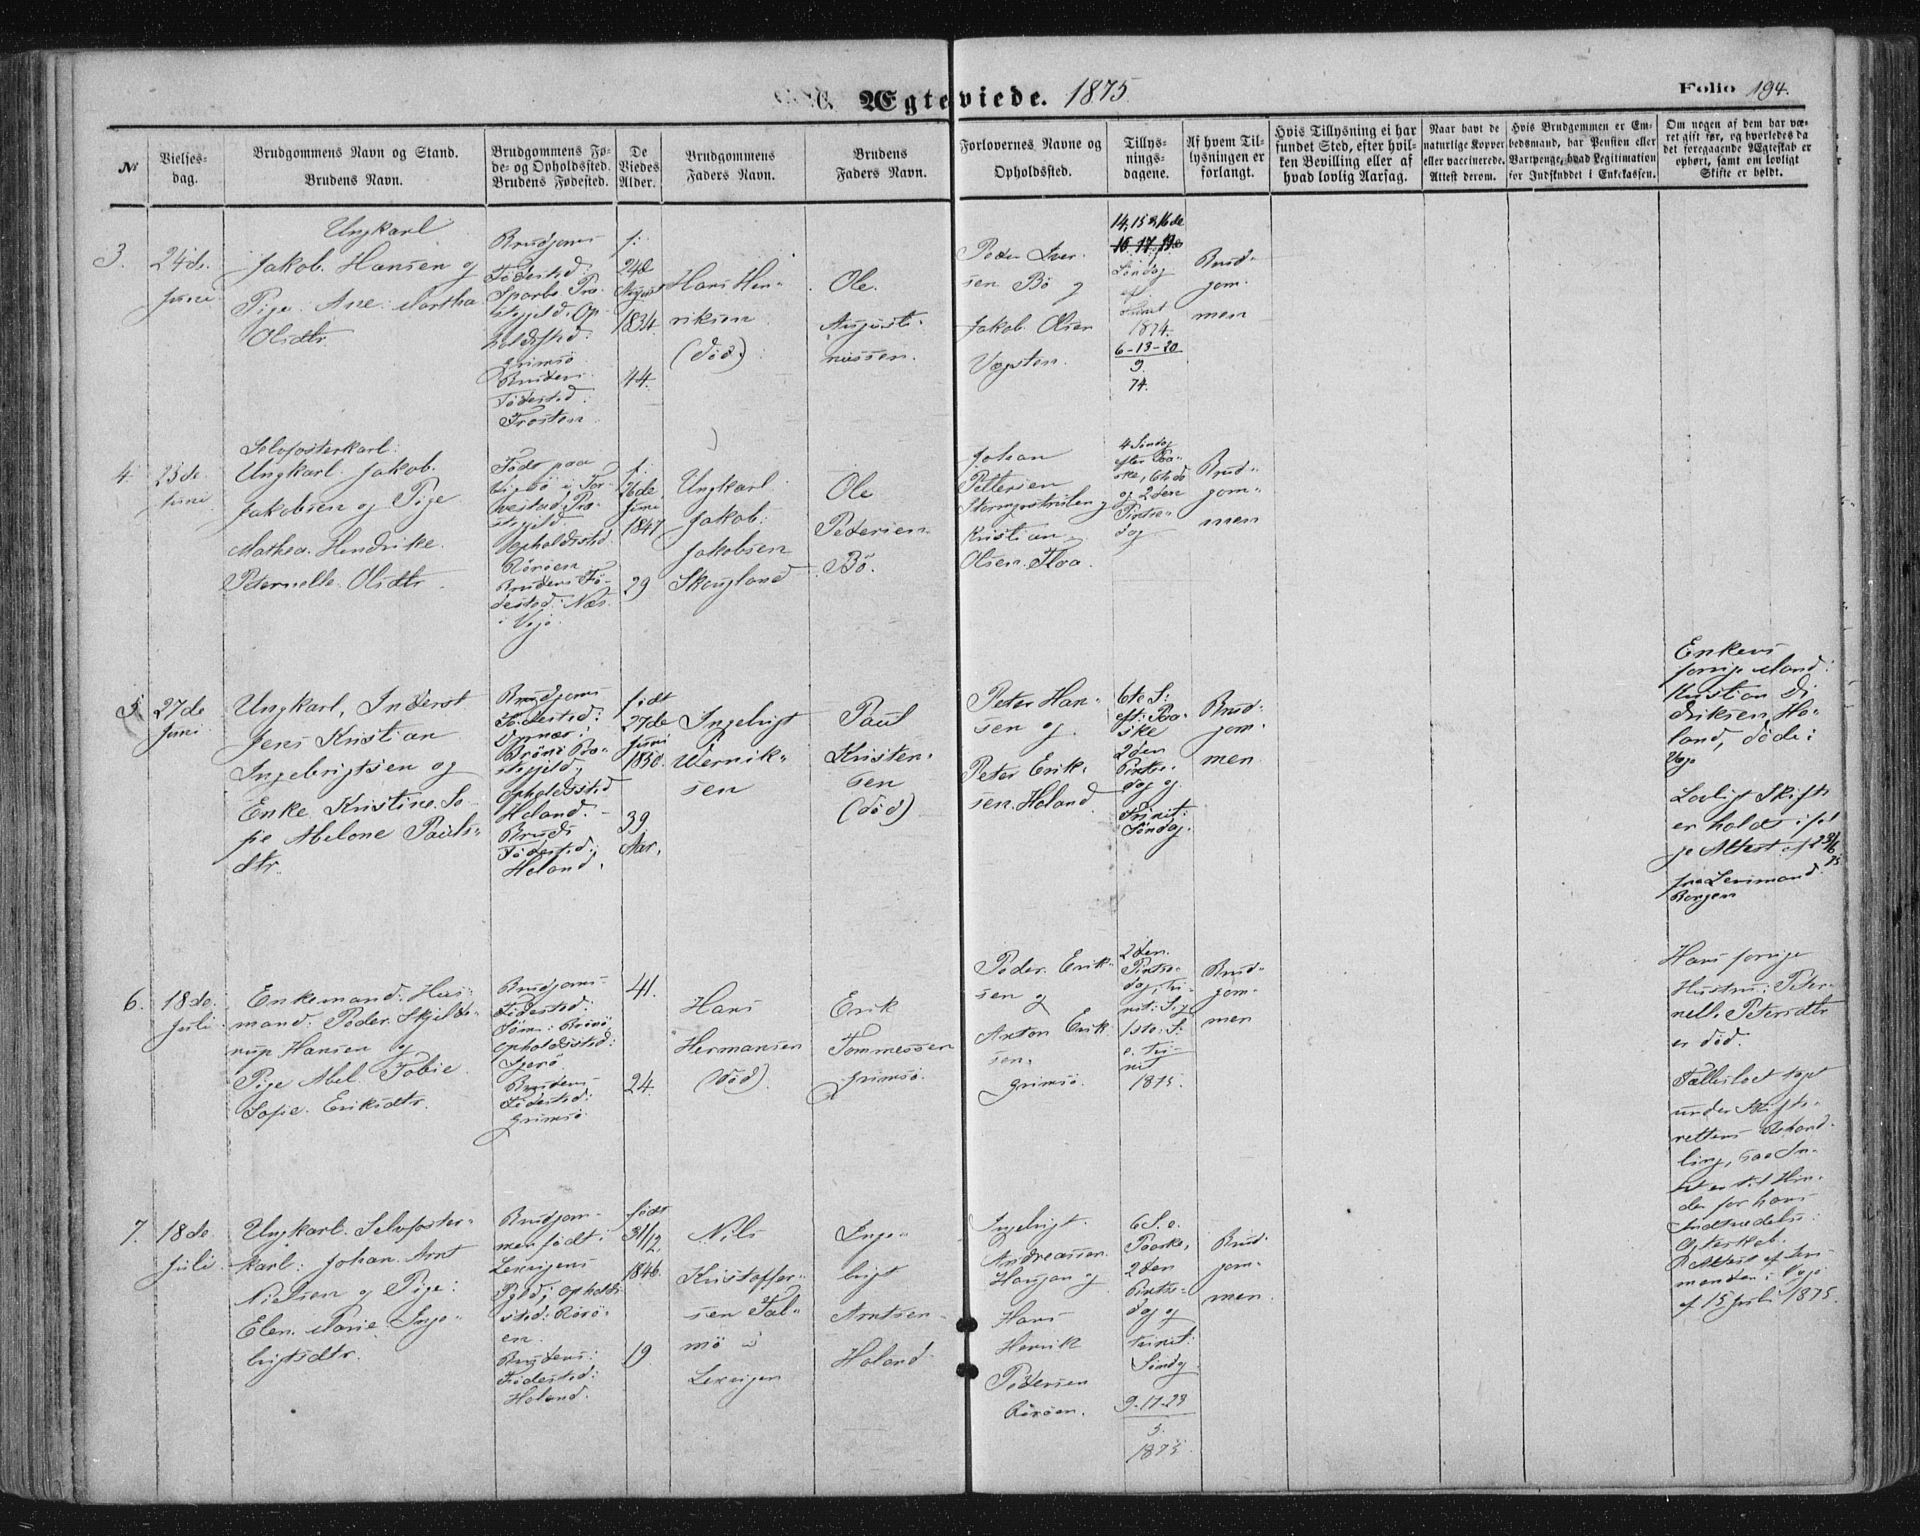 C. Ægteviede. 1875
Folio 194.
No
Vielses-
dag.
Brudgommens Navn og Stand.
Brudens Navn.
Brudgommens Fø-
de- og Opholdssted.
Brudens Fødested.
De
Viedes
Alder.
Brudgommens
Faders Navn.
Brudens
Faders Navn.
Forlovernes Navne og
Opholdssted.
Tillys-
nings-
dagene.
Af hvem Til-
lysningen er
forlangt.
Hvis Tillysning ei har
fundet Sted, efter hvil-
ken Bevilling eller af
hvad lovlig Aarsag.
Naar havt de
naturlige Kopper
eller vaccinerede.
Attest derom.
Hvis Brudgommen er Em-
bedsmand, har Pension eller
Vartpenge, hvad Legitimation
for Indskuddet i Enkekassen.
Om nogen af dem har væ-
ret gift før, og hvorledes da
det foregaaende Ægteskab er
ophørt, samt om lovligt
Skifte er holdt.
3.
24de
Juni
Ungkarl
Jakob Hansen og
Pige Ane Martha
Olsdtr.
Brudgoms
Fødested:
Sparbo Præ-
stegjeld. Op-
holdssted:
Grimsø
Brudens
Fødested:
Frosten
f:
24de
August
1834.
44.
Hans Hen-
riksen
(død)
Ole
Augusti-
nussen.
Peder Iver-
sen Bø og
Jakob Olsen
14, 15 & 16de
16. 17. 19de
Søndag
ef:
Trinit
1874.
6-13-20
9
74.
Brud-
gom-
men
4.
25de
Juni
Selvfosterkarl:
Ungkarl Jakob
Jakobsen og Pige
Mathea Hendrike
Peternelle Olsdtr
Født paa
i Tor-
vestad Præ-
stegjeld
Opholdssted
Rørøen
Brudens Fø-
dested: Næs
i Vegø.
f:
26de
Juni
1847
29
Ungkarl
Jakob
Jakobsen
Skogland
Ole
Pedersen
Bø.
Johan
Pettersen
og
Kristian
Olsen Floa
4 Søndag
efter Paa-
ske, 6te do
og 2den
Pintse-
dag
Brud-
gom-
men
5
27de
Juni
Ungkarl, Inderst
Jens Kristian
Ingebrigtsen og
Enke Kristine So-
fie Abelone Pauls-
dtr.
Brudgoms
Fødested:
Brønø Præ-
stegjeld,
Opholdssted
Holand.
Bruds
Fødested:
Holand.
født
27de
Juni
1850.
39
Aar.
Ingebrigt
Wernik-
sen
Paul
Kristen-
sen
(død)
Peter Han-
sen og
Peter Erik-
sen Holand.
6te S:
eft: Paa-
ske
2den
Pintse-
dag og
Trinit:
Søndag.
Brud-
gom-
men.
Enkens
forrige Mand:
Kristian Di-
driksen Ho-
land, døde i
Vegø
Lovligt Skifte
er holdt iføl-
ge Attest af 23/6
75
fra Lensmand
Borgen
6.
18de
Juli
Enkemand. Huus-
mand. Peder Skjelde-
rup Hansen og
Pige Abel Tobie
Sofie Eriksdtr.
Brudgoms
Fødested:
Sømn: Brønø
Opholdssted:
Brudens
Fødested:
Grimsø
41.
24.
Hans
Hermansen
(død)
Erik
Tommessen
Grimsø.
Peder Erik-
sen og
Anton Erik-
sen.
Grimsø.
2den
Pintse-
dag, Tri-
nit: S. og
1ste S:
e. Tri-
nit
1875.
Brud-
gom-
men
Hans forrige
Hustru: Peter-
nelle Petersdtr
er død.
Fællesboet taget
under Skifte-
rettens Behand-
ling, saa In-
tet er til Hin-
der for hans
Indtrædelse i
Ægteskab.
Attest af Lens-
manden i Vegø
af 15 Juli 1875.
7.
18de
Juli
Ungkarl. Selvfoster-
karl: Johan Arnt
Nielsen og Pige:
Elen Marie Inge-
brigtsdtr.
Brudgom-
men født i
Lexvigens
Pgld; Ophold-
sted: Rørø-
en.
Brudens
Fødested:
Holand.
født
31/12
1846
19
Nils
Kristoffer-
sen Fal-
mø i
Lexvigen
Inge-
brigt
Arntsen
Holand
Ingebrigt
Andreassen
og
Hans
Henrik
Pedersen
Rørøen.
6 S. e.
Paaske,
2den
Pintse-
dag og
Trinit:
Søndag
9-17-23
5.
1875.
Brud-
gom-
men.